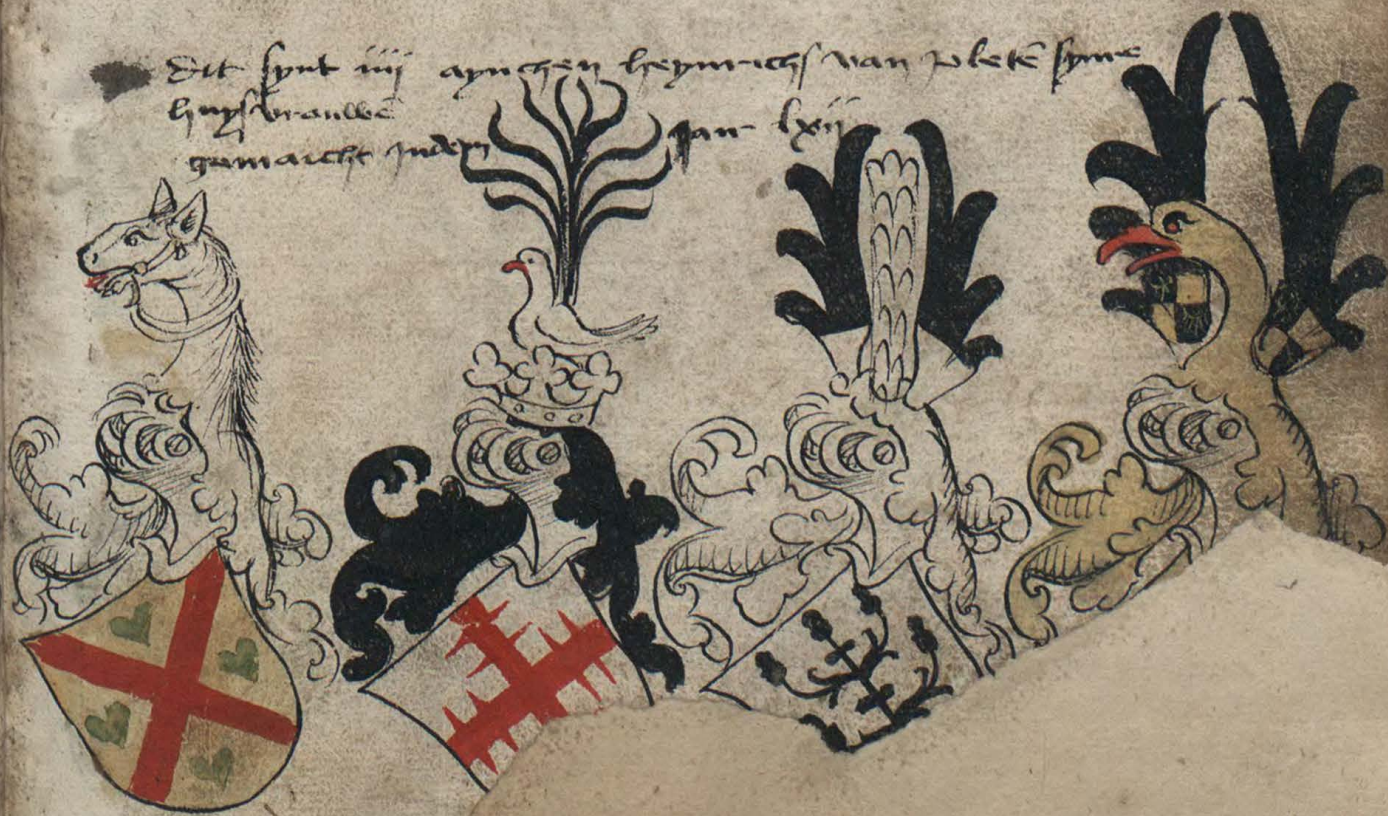 Dit synt iiii aynchen heynrichs van pletē syne
huysvrauwē
gemaicht in dem Jair lxii